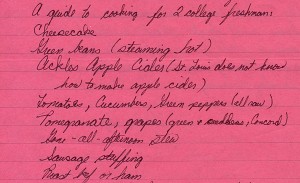 A guide to cooking for 2 college freshman:
Cheesecake
Green beans (steaming hot)
Ackles Apple Cider (St. Louis does not know
how to make apple cider)
Tomatoes, Cucumbers, Green peppers (all raw)
Pomegranate, grapes (green & seedless, Concord)
Gone-all-afternoon Stew
Sausage stuffing
Roast beef or ham